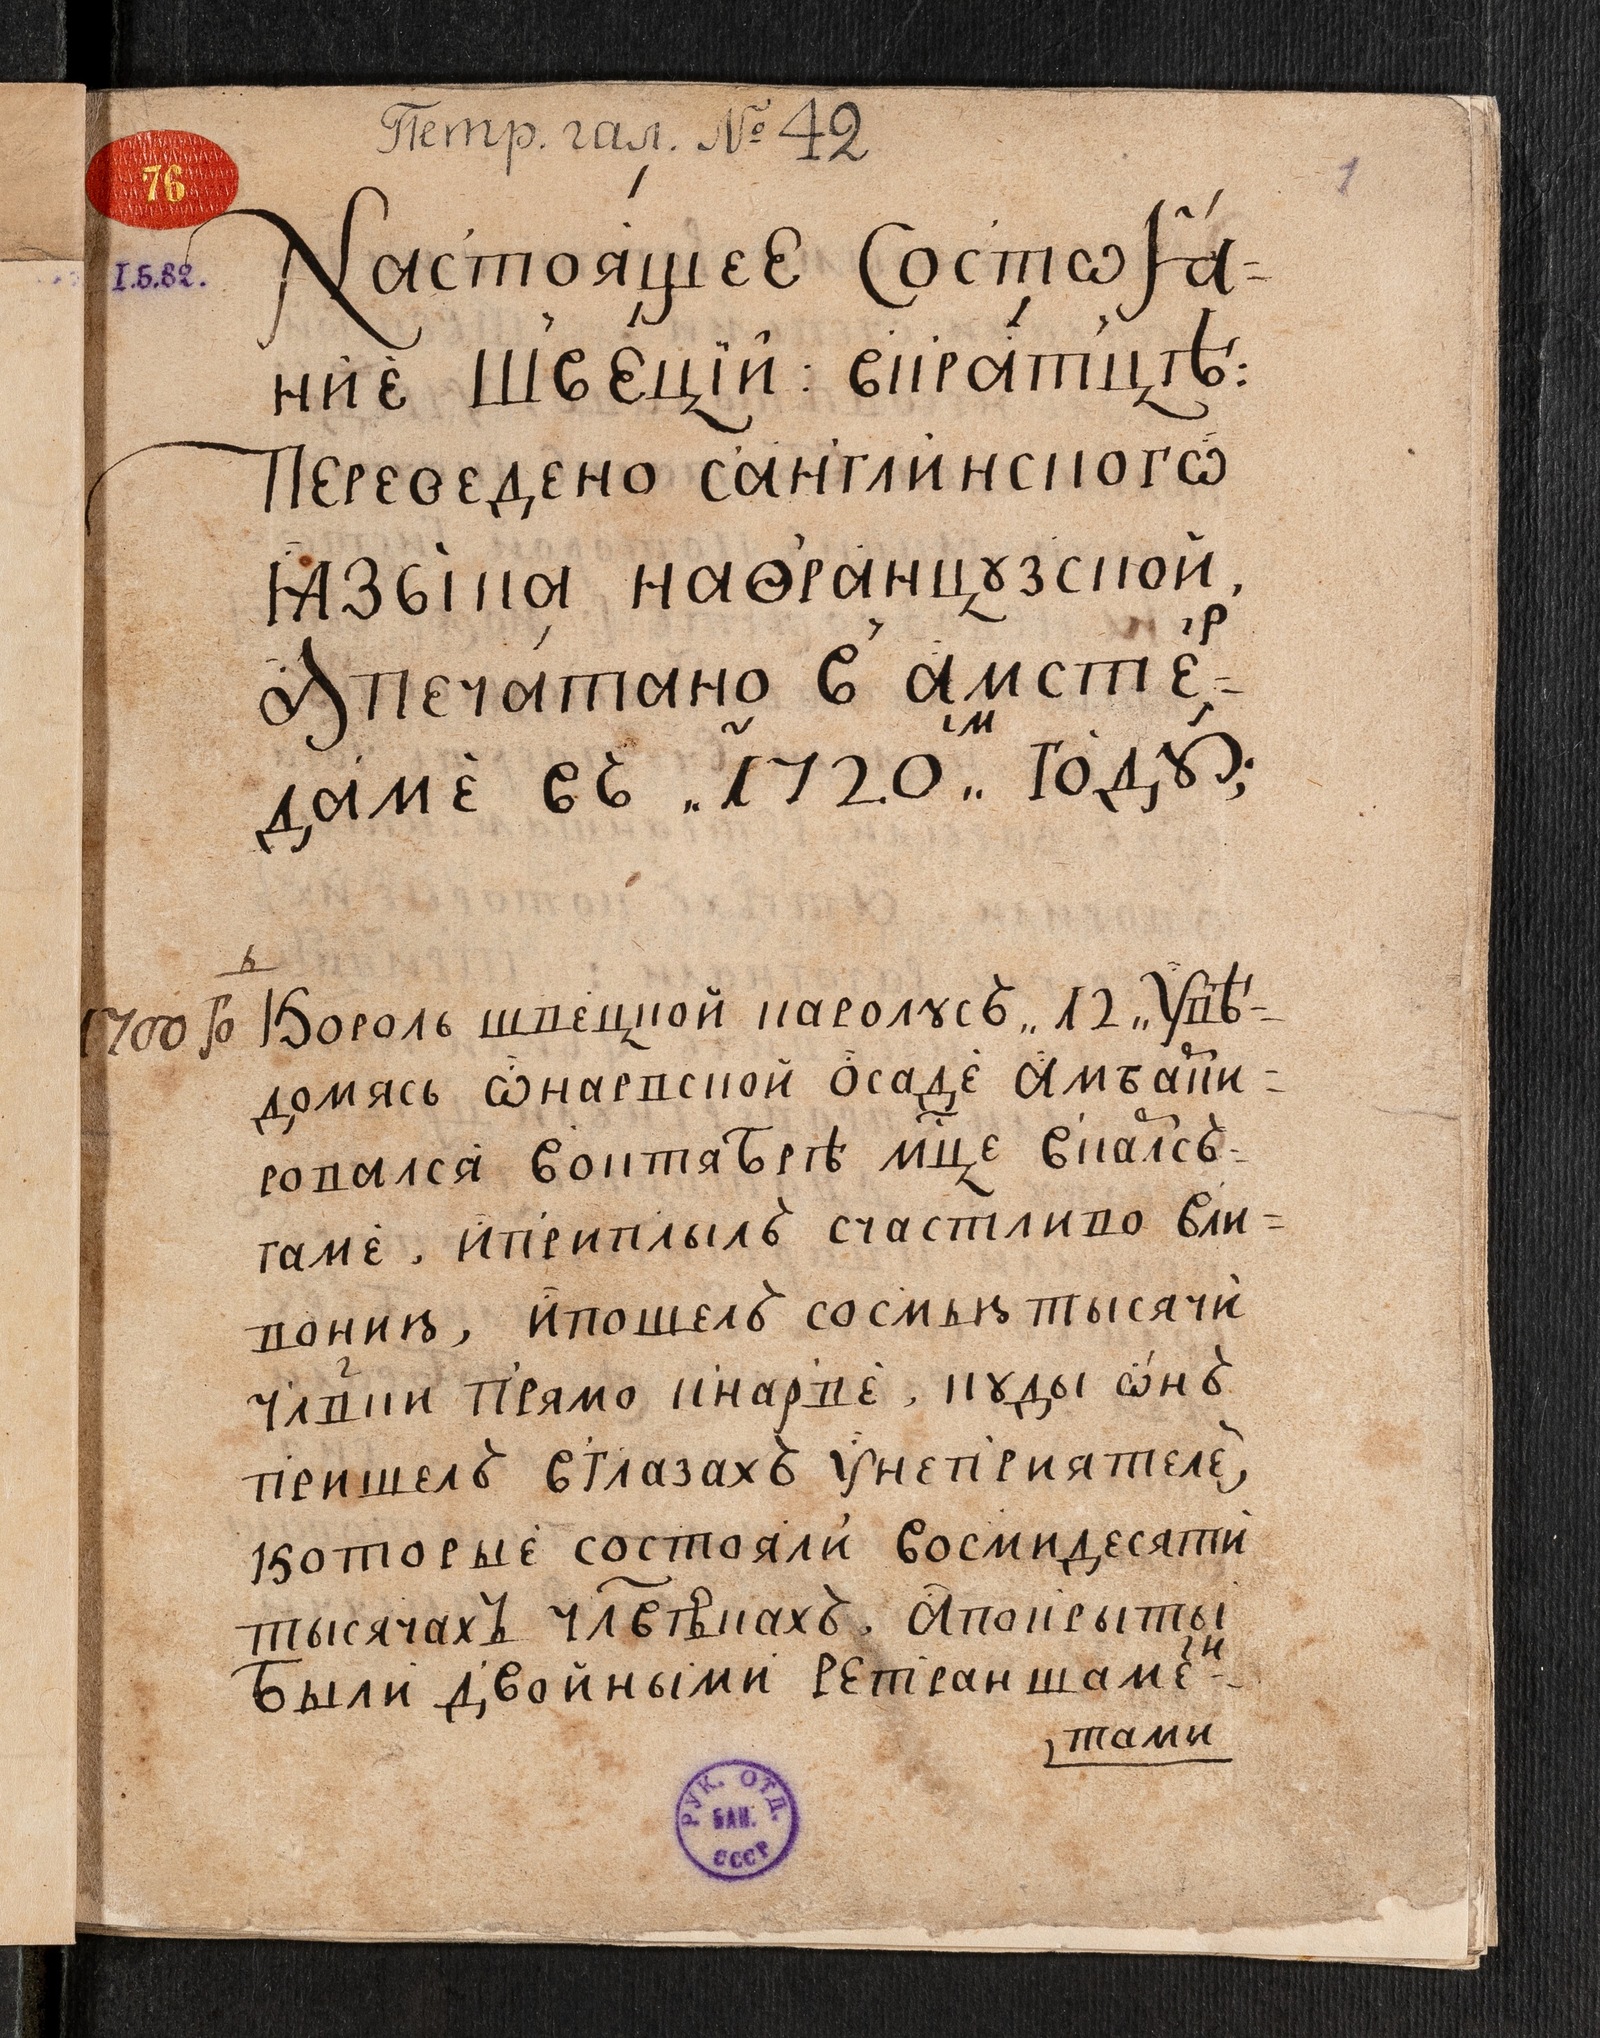 Петр. гал. № 42
76
1
I.Б.82.
Настоящее Состѡꙗ=
ние Швецїи: вкратцѣ:
Переведено санглинскогѡ
ꙗзыка наѳранцꙋзской,
Ѿпечатано в амстер=
даме въ „1720„м годꙋ;
1700 го
Король швецкой каролꙋсъ „12„ Увѣ=
домясь ѡнарвской осаде амбарки=
ровался воктябрѣ мц҃е вкарлсъ=
гаме, иприплылъ счастливо вли=
вонию, ипошелъ сосмью тысячи
члвки прямо кнарве, кꙋды ѡнъ
пришелъ вглазахъ ꙋнеприятелей,
которые состояли восмидесяти
тысячахъ чл҃вѣкахъ, апокрыты
были двойными ретраншамен=
тами
РУК. ОТД.
БАН.
СССР